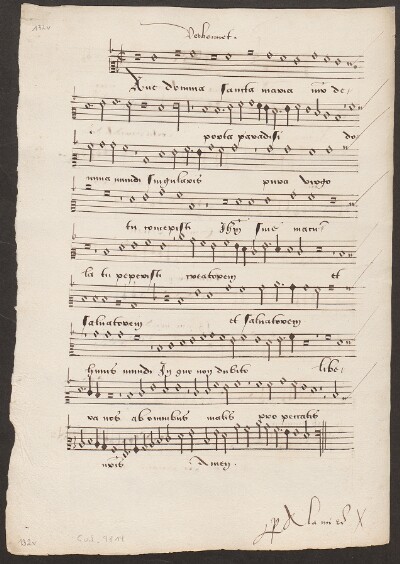 132v
Verbonnet.
Aue domina sancta maria mr de-
porta paradisi do
mina mundi singularis pura virgo
tu concepisti Jhm sine macu-
la tu peperisti creatorem et
saluatorem et saluatorem
huius mundi In quo non dubito libe-
ra nos ab omnibus malis pro peccatis
nris Amen.
la mi
132v